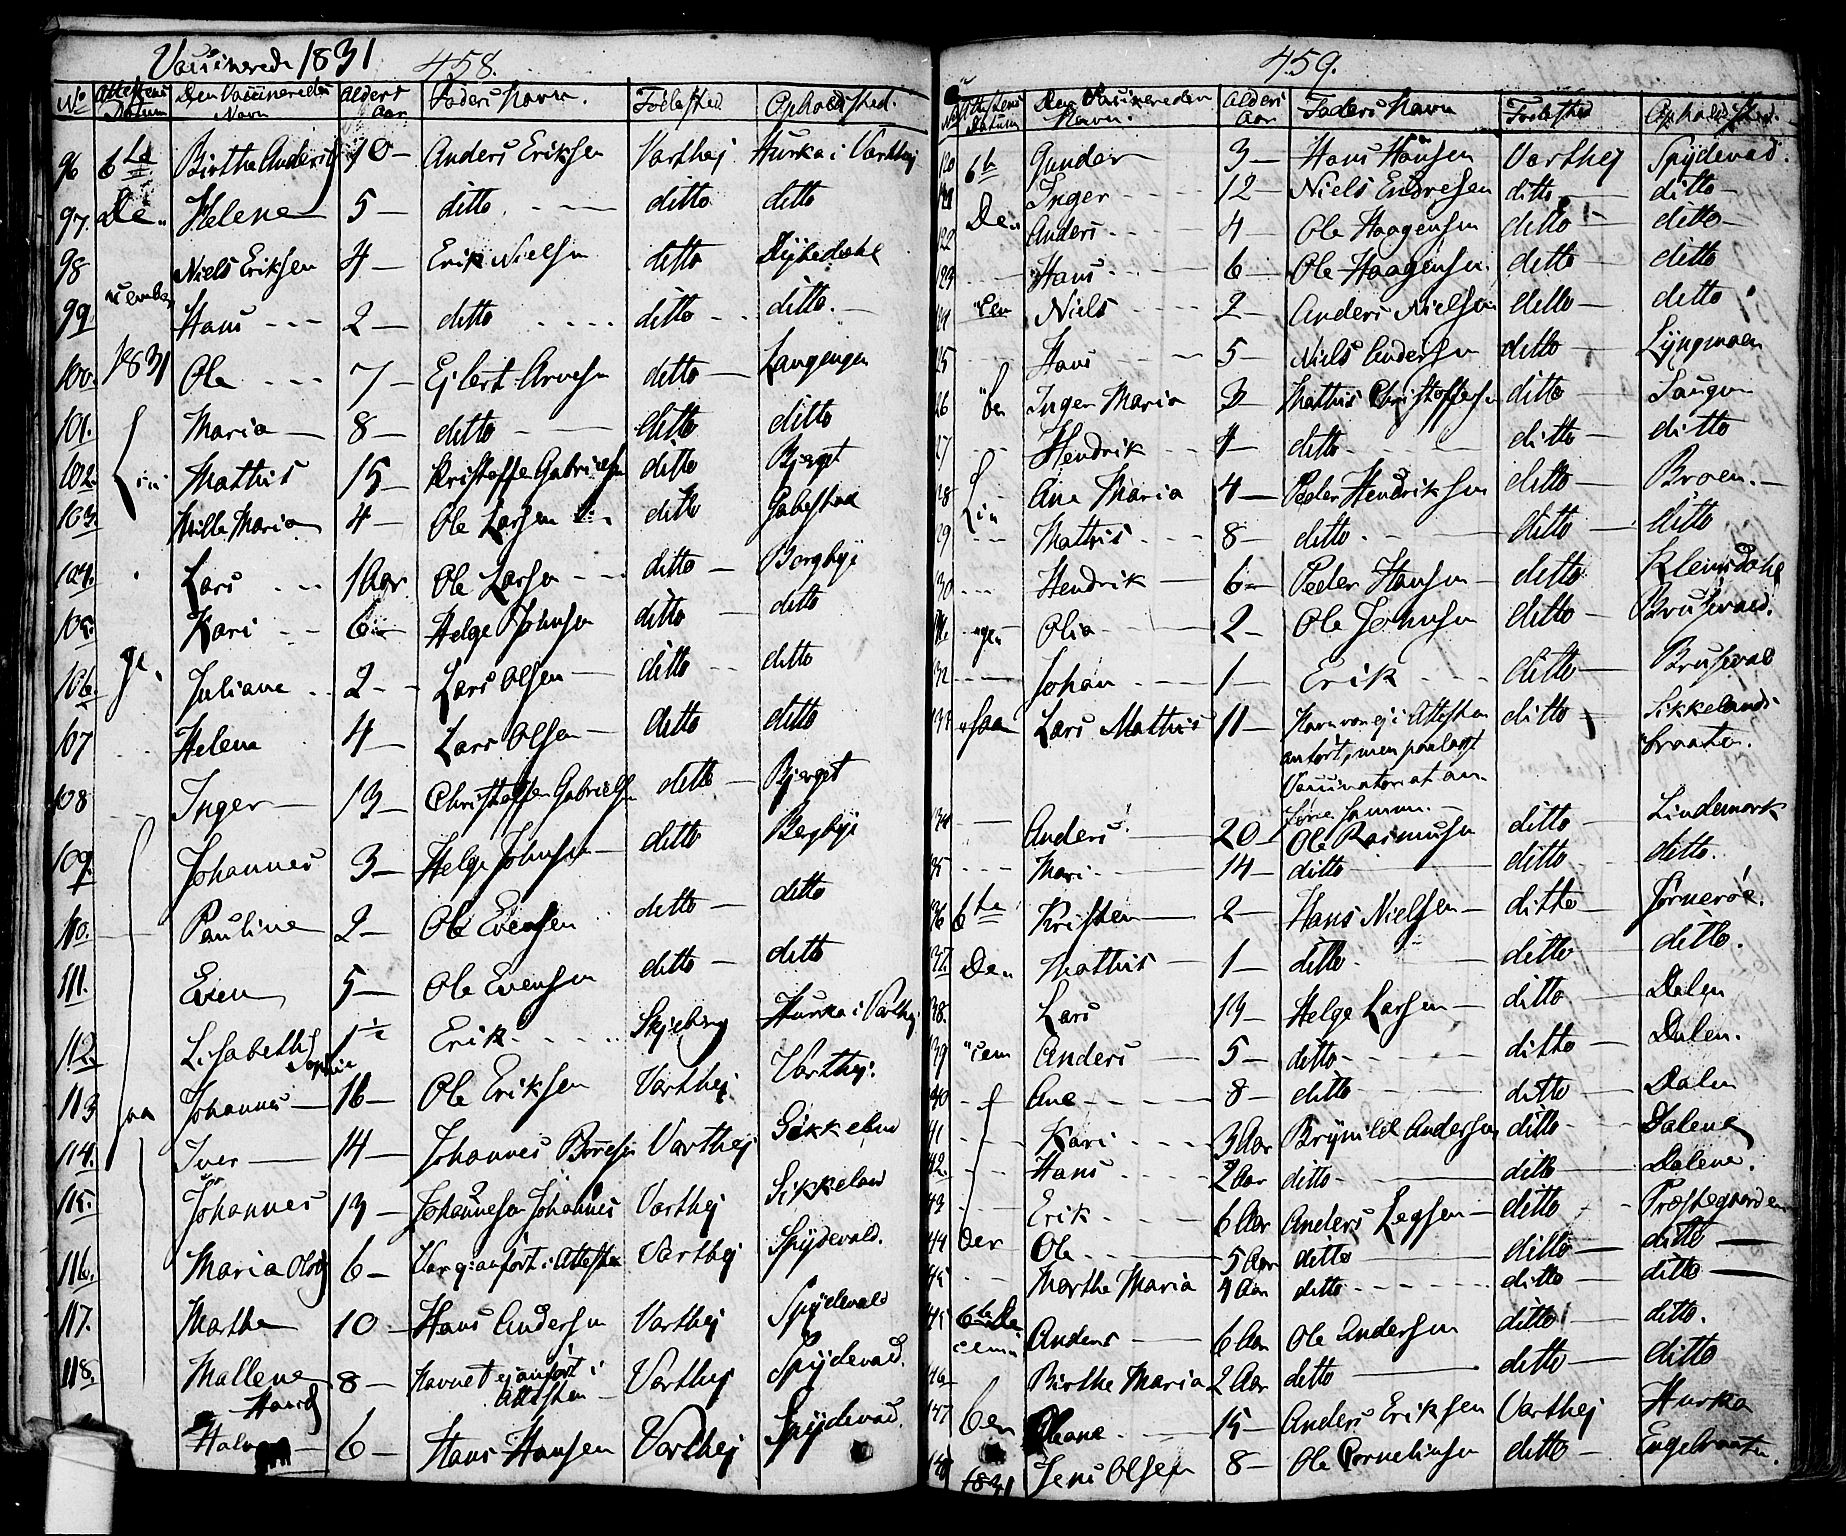 Vaccinerede 1831 458.
No Attestens Datum Den Vaccineredes Navn Alders Aar Faders Navn. Fødested Opholdsted.
96 6te Birthe Andersd 10 — Anders Eriksen Varthej Hurka i Varthej
97. De„ Helene 5 — ditto ditto ditto
98 Niels Eriksen 4 — Erik Nielsen ditto
99 cember Hans 2 — ditto ditto ditto.
100. 1831 Ole 7 — Ejlert Arvesen ditto — Langengen
101. Maria — 8 — ditto ditto ditto
102. Lin Mathis 15 — Kristoffe Gabrielsen ditto Bjerget
103. Maria 4 — Ole Larsen ditto Gabestad
104. Lars 1 Aar Ole Larsen ditto — Borgbye
105. Kari 6 — Helge Johnsen ditto — ditto
106. ge„ Juliane 2 — Lars Olsen — ditto ditto
107 Helene 4 — Lars Olsen — ditto ditto
108 Inger — 13 — Christoffer Gabrielsen ditto — Bjerget
109. Johannes 3 — Helge Johnsen ditto Bergbye
110. Pauline 2 — Ole Evensen ditto — ditto
111. Even 5 — Ole Evensen ditto — ditto
112. Lisabeth Sophie 1½ Erik Skjeberg Hurka i Varthej
113 saa Johannes — 16 — Ole Eriksen Varthej Varthej.
114. Iver — 14 — Johannes Børesen Varthej Sikkeland
115. Johannes 13 — Johannesen Johannes Varthej Sikkeland
116. Maria Olsdr 6 — Var ej anført i Attesten Varthej Spydevald.
117. Marthe 10 — Hans Andersen Varthej Spydevald
118. Mallene Hansd 8 — Navnet ej anført i Attesten — Varthej Spydevad.
Halvor — 6 — Hans Hansen Varthej Spydevad.
459.
No Attestens Datum Den Vaccineredes Navn. Alders Aar Faders Navn Fødested Opholdsted.
120 6te Gunder 3 — Hans Hansen Varthej Spydevad.
121 Inger 12 — Niels Endresen ditto — ditto —
122 De„ Anders 4 — Ole Haagensen ditto — ditto —
123 Hans 6 — Ole Haagensen. ditto — ditto
124 cem Niels 2 — Anders Nielsen ditto — ditto
125 Hans 5 — Niels Andersen ditto — Lyngmoen
126 ber Inger Maria 3 — Mathis Christoffersen ditto —
127 Hendrik 1 — ditto ditto — ditto
128 Lin Ane Maria 4 — Peder Hendriksen ditto — Braen. —
129 Mathis 8 — ditto ditto — ditto
130 Hendrik — 6 — Peder Hansen — ditto
131. gen Olia 2 — Ole Johnsen ditto — Brusevald.
132 Johan 1 — Erik ditto — Brusevald
133 saa Lars Mathis 11 — Navn var ej i Attesten ditto — Sikkelands
anført, men paalagt braaten.
Vaccinator at an-
føre samme. —
134 Anders — 20 — Ole Rasmusen ditto — Lindemark
135 Mari 14 — ditto ditto ditto.
136 6te Kristen — 2 — Hans Nielsen — ditto — Tørnerøe.
137. De„ Mathis — 1 — ditto ditto ditto.
138. Lars 19 — Helge Larsen — ditto — Dalen
139 cem Anders — 5 — ditto ditto — Dalen.
140 Ane 8 — ditto ditto — Dalen
141 Kari 3 Aar Brynild Andersen ditto — Dalene
142. Hans 2 Aar ditto ditto — Dalene.
143 Erik 6 Aar Anders Legsen — ditto Præstegaarden
144 ber Ole 5 Aar ditto ditto — ditto —
145 Marthe Maria 4 Aar ditto ditto — ditto —
145 6te De Anders — 6 Aar Ole Andersen ditto — ditto.
146 cem„ Birthe Maria 2 Aar ditto ditto — ditto
147 ber Oleane 15 — Anders Eriksen Varthej Hurka
148 1831 Jens Olsen 8 — Ole Cornelinsen ditto — Engebraaten.